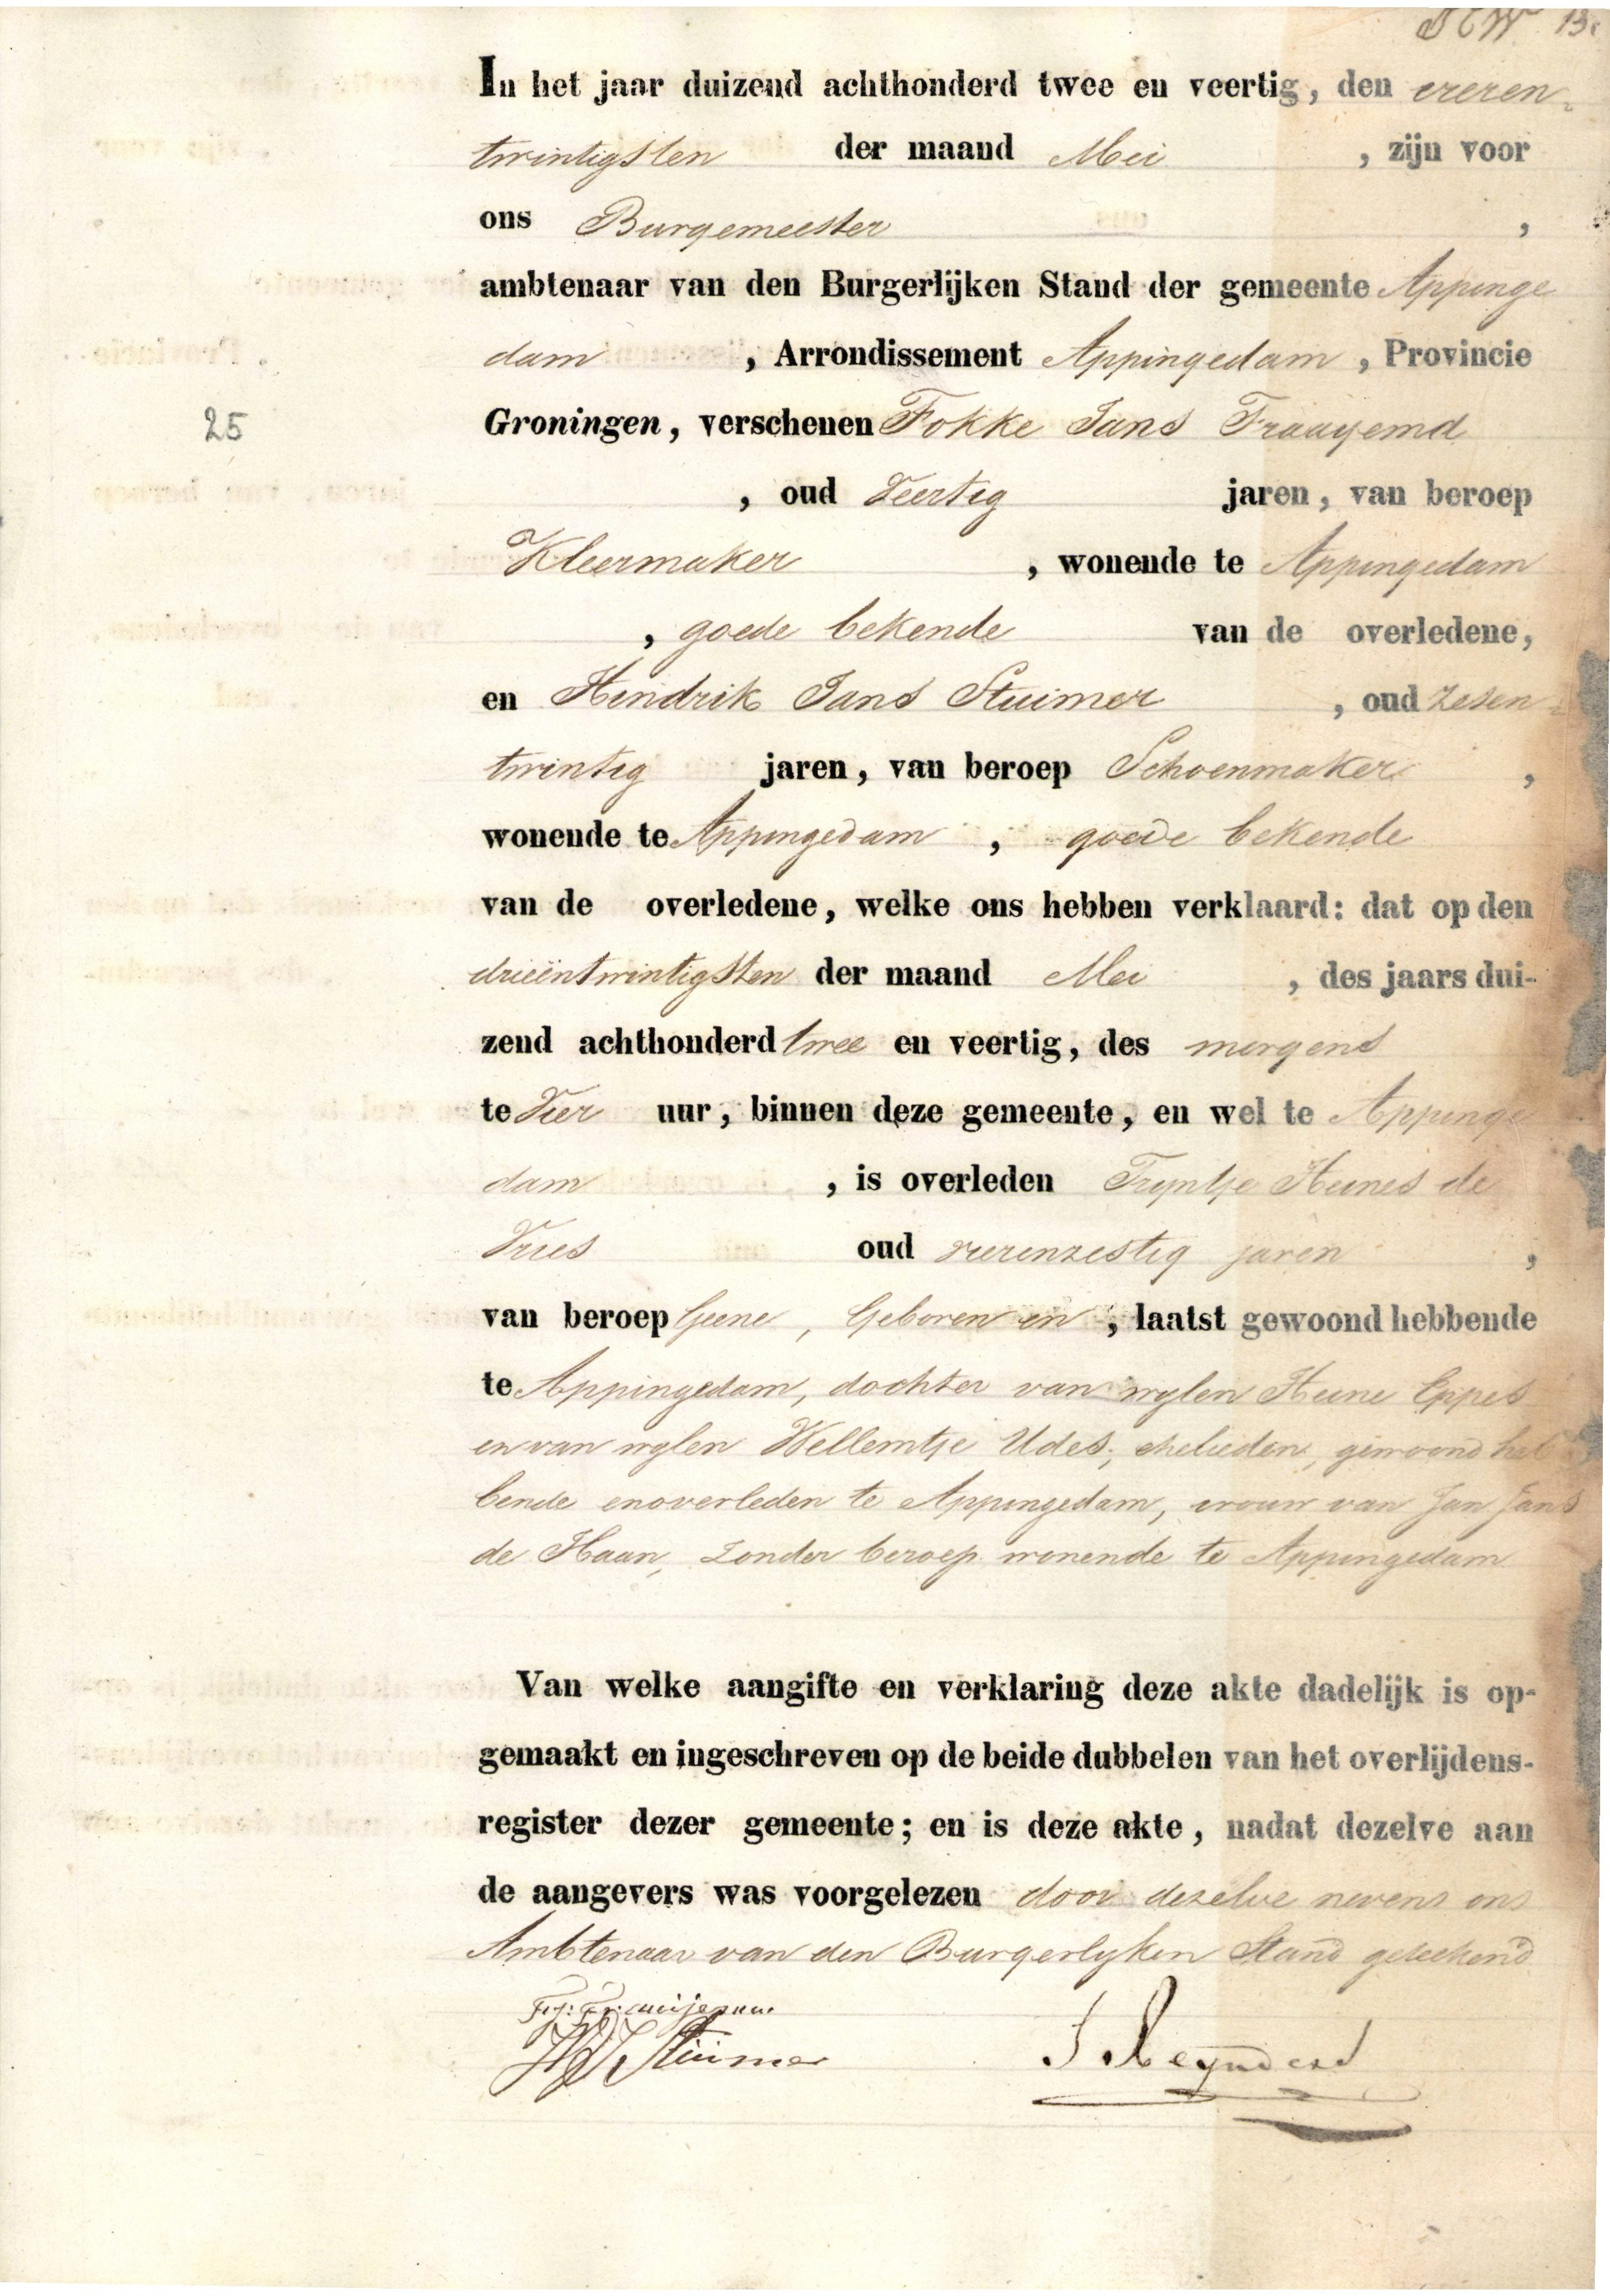 In het jaar duizend achthonderd twee en veertig, den vieren-
twintigsten der maand Mei , zijn voor
ons Burgemeester ,
ambtenaar van den Burgerlijken Stand der gemeente Appinge
dam , Arrondissement Appingedam , Provincie
25
Groningen, verschenen Fokke Jans
, oud Veertig jaren, van beroep
Kleermaker , wonende te Appingedam
, goede bekende van de overledene,
en Hindrik Jans Stuimer , oud Zesen-
twintig jaren, van beroep Schoenmaker ,
wonende te Appingedam , goede bekende
van de overledene, welke ons hebben verklaard: dat op den
drieëntwintigsten der maand Mei , des jaars dui-
zend achthonderd twee en veertig, des morgens
te Vier uur, binnen deze gemeente, en wel te Appinge
dam , is overleden Trijntje Heines de
Vries oud vierenzestig jaren ,
van beroep Geene, Geboren en , laatst gewoond hebbende
te Appingedam, dochter van wylen Heine Eppes
en van wylen Wellemtje Udes, ehelieden, gewoond heb
bende en overleden te Appingedam, vrouw van Jan Jans
de Haan, Zonder beroep wonende te Appingedam
Van welke aangifte en verklaring deze akte dadelijk is op-
gemaakt en ingeschreven op de beide dubbelen van het overlijdens-
register dezer gemeente; en is deze akte, nadat dezelve aan
de aangevers was voorgelezen door dezelve nevens ons
Ambtenaar van den Burgerlyken Stand geteekend
HJ Stuimer